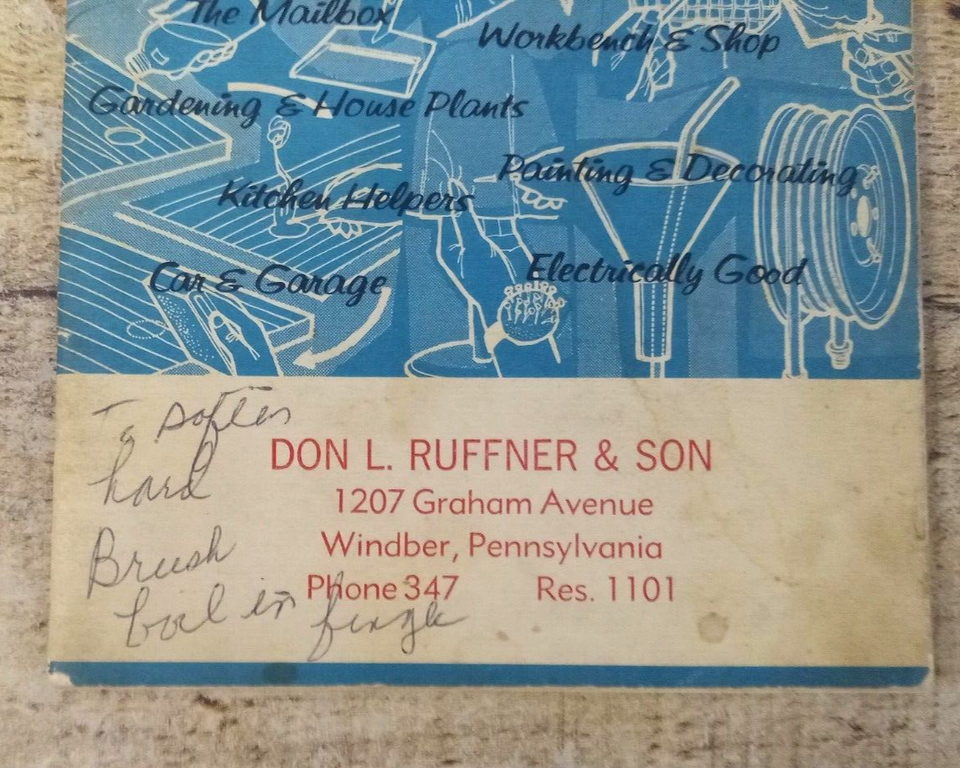 The Mailbox
Workbench & Shop
Gardening & House Plants
Painting & Decorating
Kitchen Helpers
Electrically Good
Car & Garage
To soften
hard
Brush
boil in
DON L. RUFFNER & SON
1207 Graham Avenue
Windber, Pennsylvania
Phone 347 Res. 1101